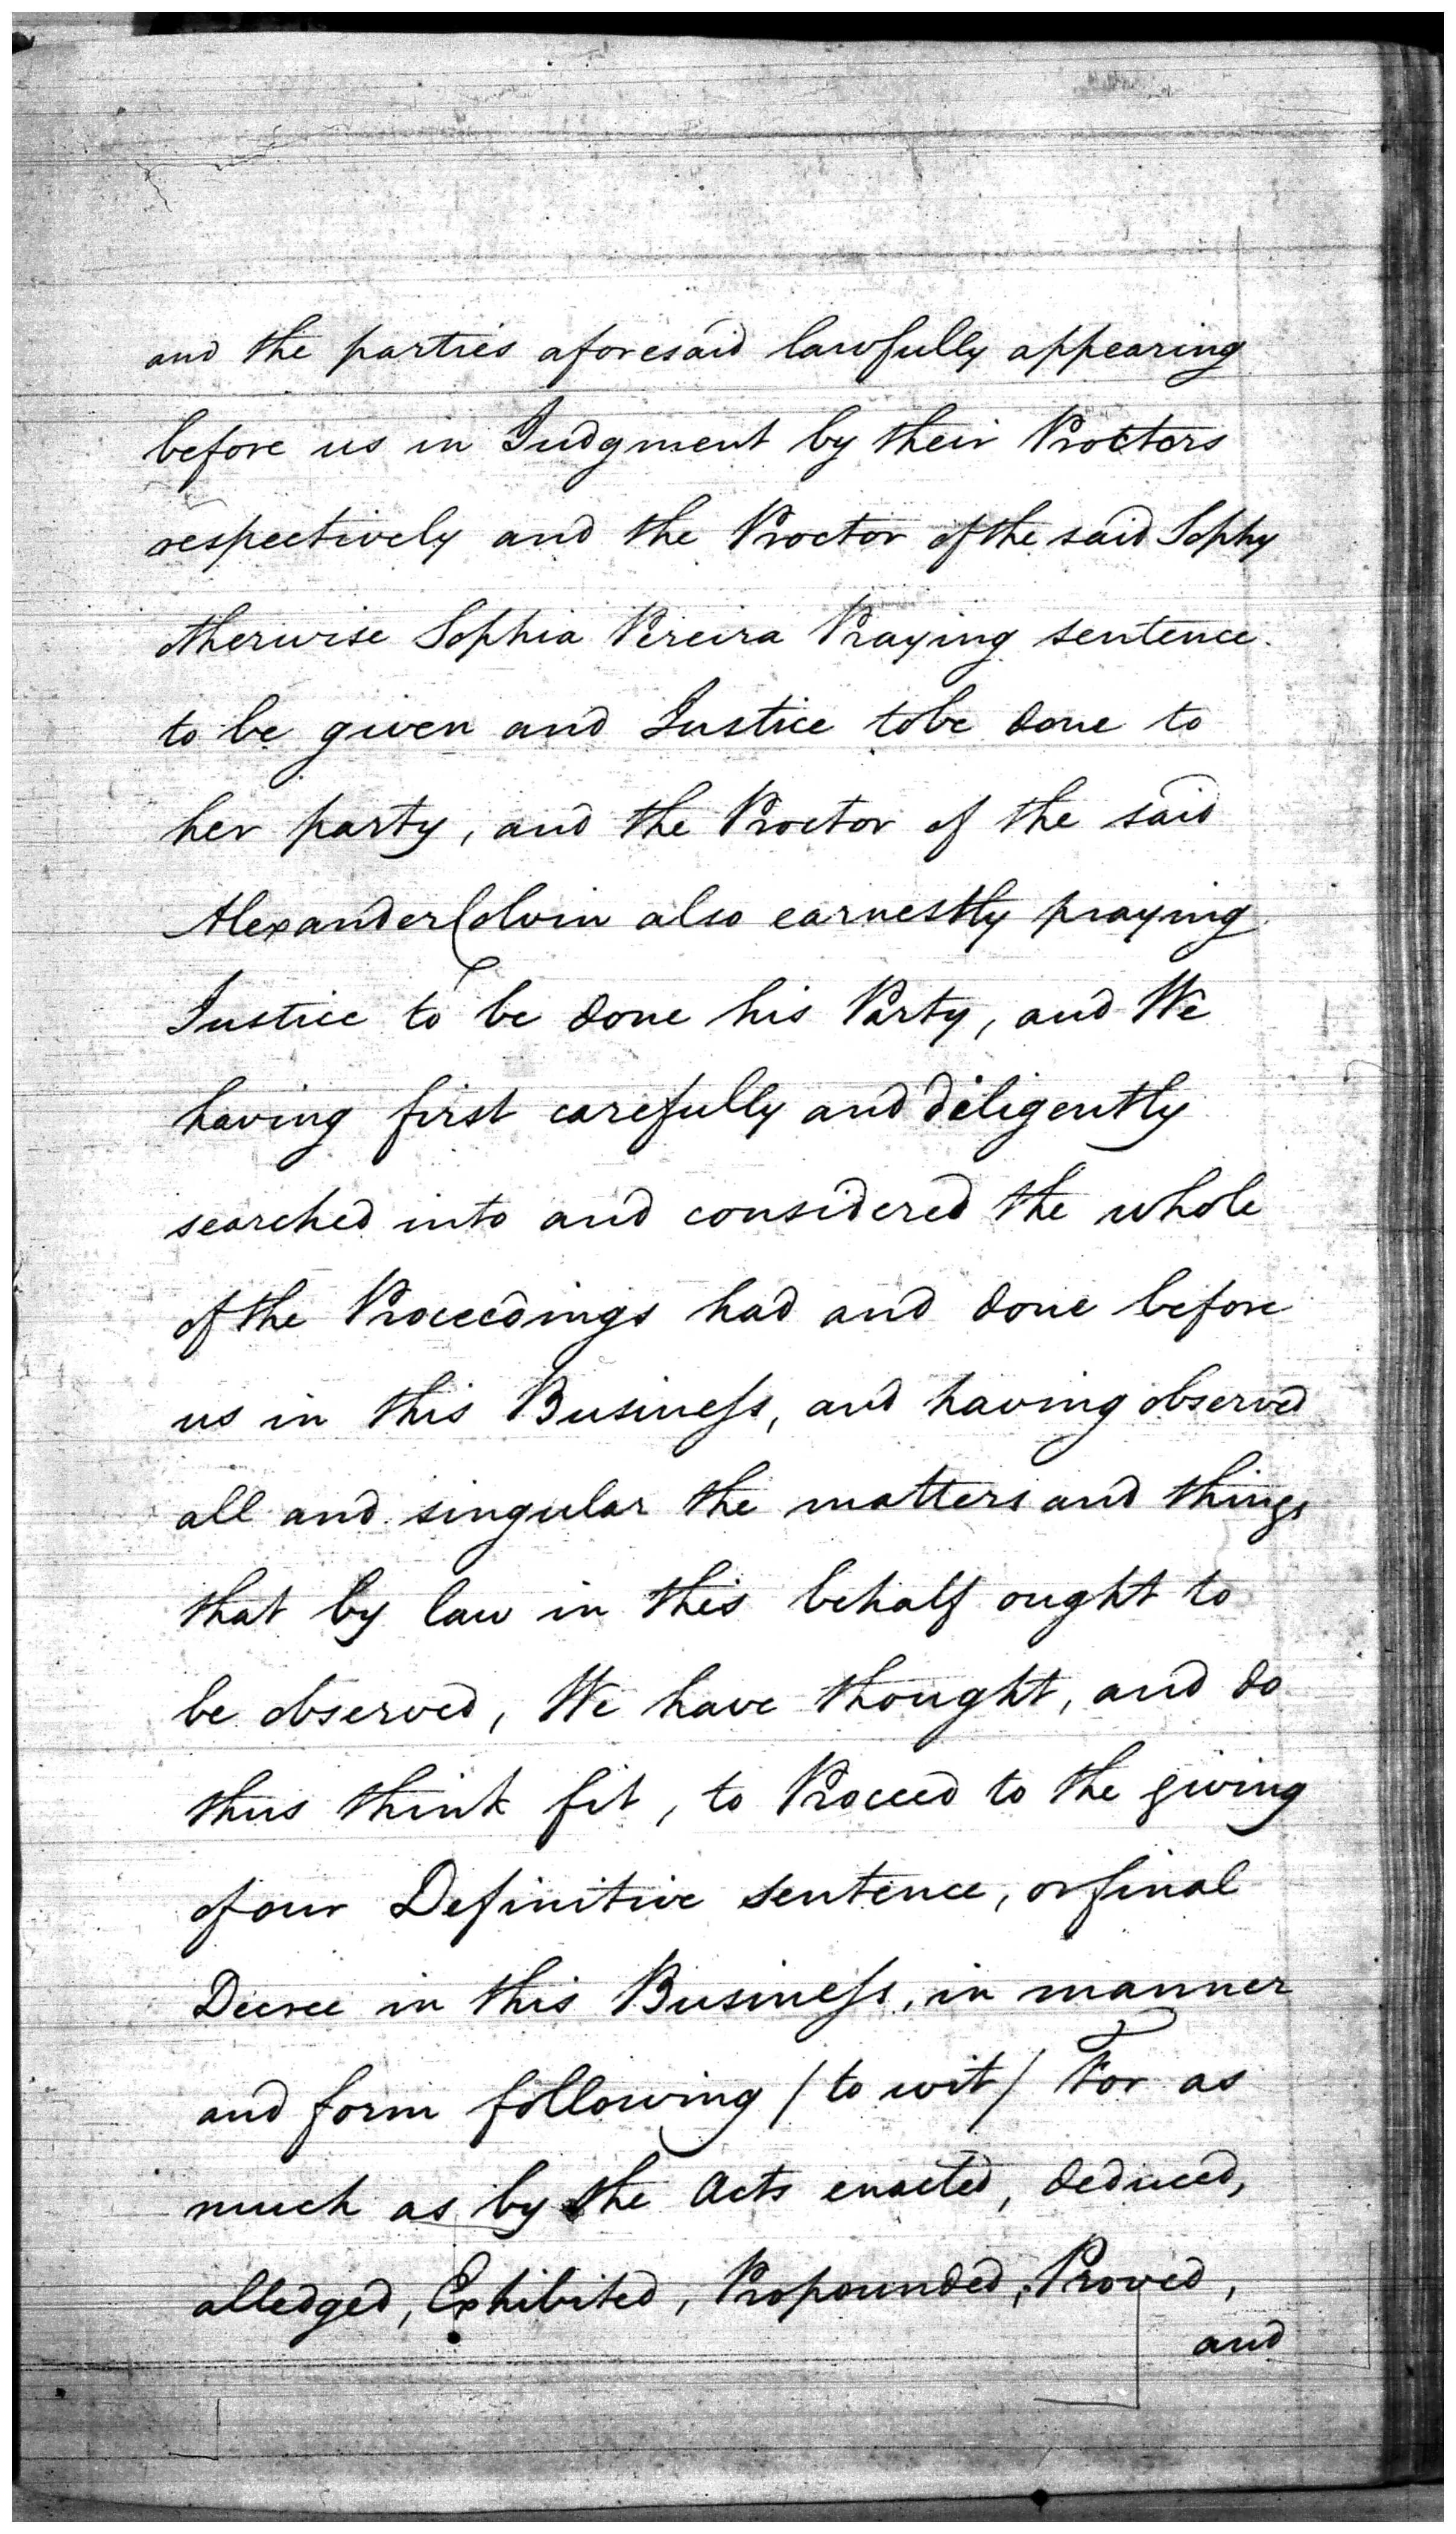 and the parties aforesaid lawfully appearing
before us in Judgment by their Proctors
respectively and the Proctor of the said Sophy
otherwise Sophia Pereira Praying sentence
to be given and Justice tobe done to
her party, and the Proctor of the said
Alexander Colvin also earnestly praying
Justice to be done his Party, and We
having first carefully and diligently
searched into and considered the whole
of the Proceedings had and done before
us in this Business, and having observed
all and singular the matters and things
that by law in this behalf ought to
be observed, We have thought, and do
thus think fit, to Proceed to the giving
of our Definitive sentence, or final
Decree in this Business, in manner
and form following / to wit / For as
much as by the Acts enacted, deduced,
alledged, Exhibited, Propounded, Proved,
and